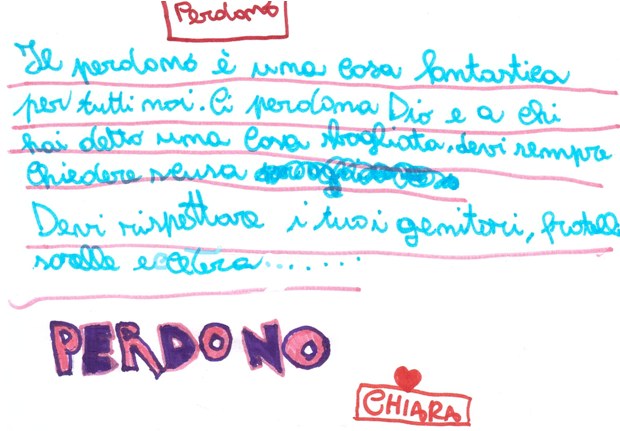 Perdono
Il perdono è una cosa fantastica
per tutti noi. Ci perdona Dio e a chi
hai detto una cosa sbagliata. devi sempre
chiedere scusa
Devi rispettare i tuoi genitori, fratelli
sorelle eccetera.......
PERDONO
CHIARA